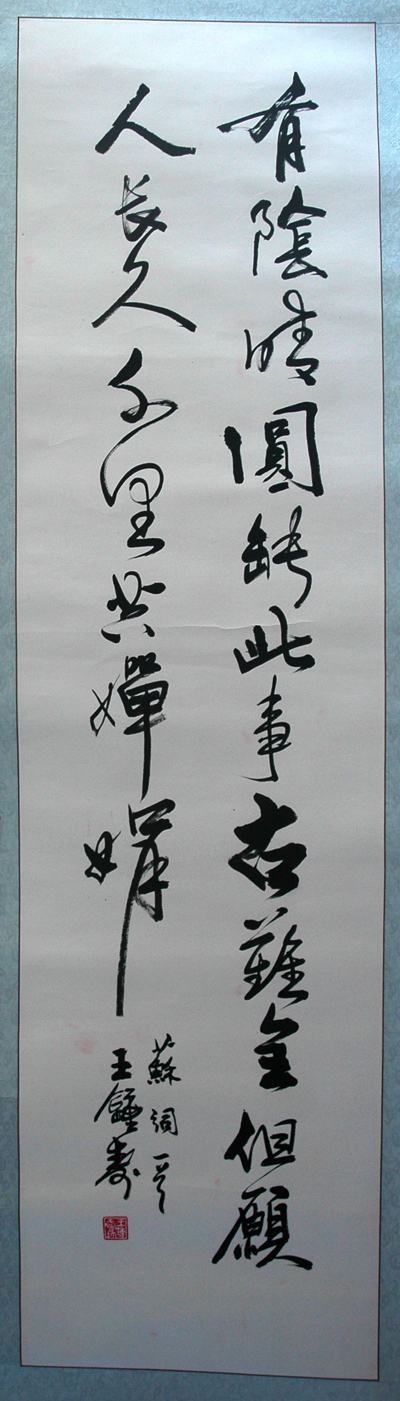 有陰晴圓缺此事古難全但願
人長久千里共嬋娟
蘇詞一
王 壽